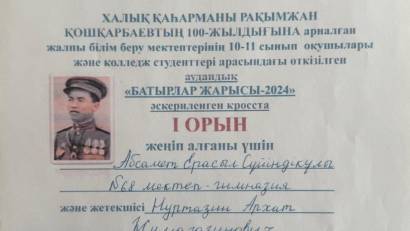 ХАЛЫҚ ҚАҺАРМАНЫ РАҚЫМЖАН
ҚОШҚАРБАЕВТЫҢ 100-ЖЫЛДЫҒЫНА арналған
жалпы білім беру мектептерінің 10-11 сынып оқушылары
және колледж студенттері арасындағы өткізілген
аудандық
«БАТЫРЛАР ЖАРЫСЫ-2024»
әскериленген кросста
I ОРЫН
жеңіп алғаны үшін
Абсамет Ерасыл
№68 мектеп-гимназия
және жетекшісі Нұртазин Архат